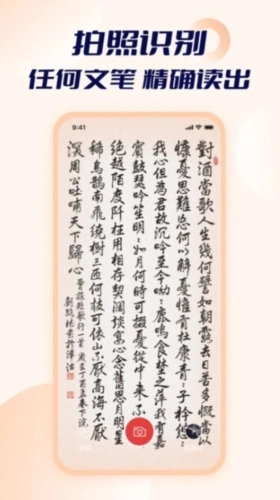 拍照识别
任何文笔 精确读出
9:41
對酒當歌人生幾何譬如朝露去日苦多慨當以
慷憂思難忘何以解憂惟有杜康青:子衿悠:
我心但為君故沉吟至今呦:鹿鳴食野之苹我有嘉
賓鼓瑟吹笙明:如月何時可掇憂從中來不
絕越陌度阡枉用相存契闊談宴心念舊恩月明星
稀烏鵲南飛繞樹三匝何枝可依山不厭高海不厭
深周公吐哺天下歸心
曹操短歌行一首